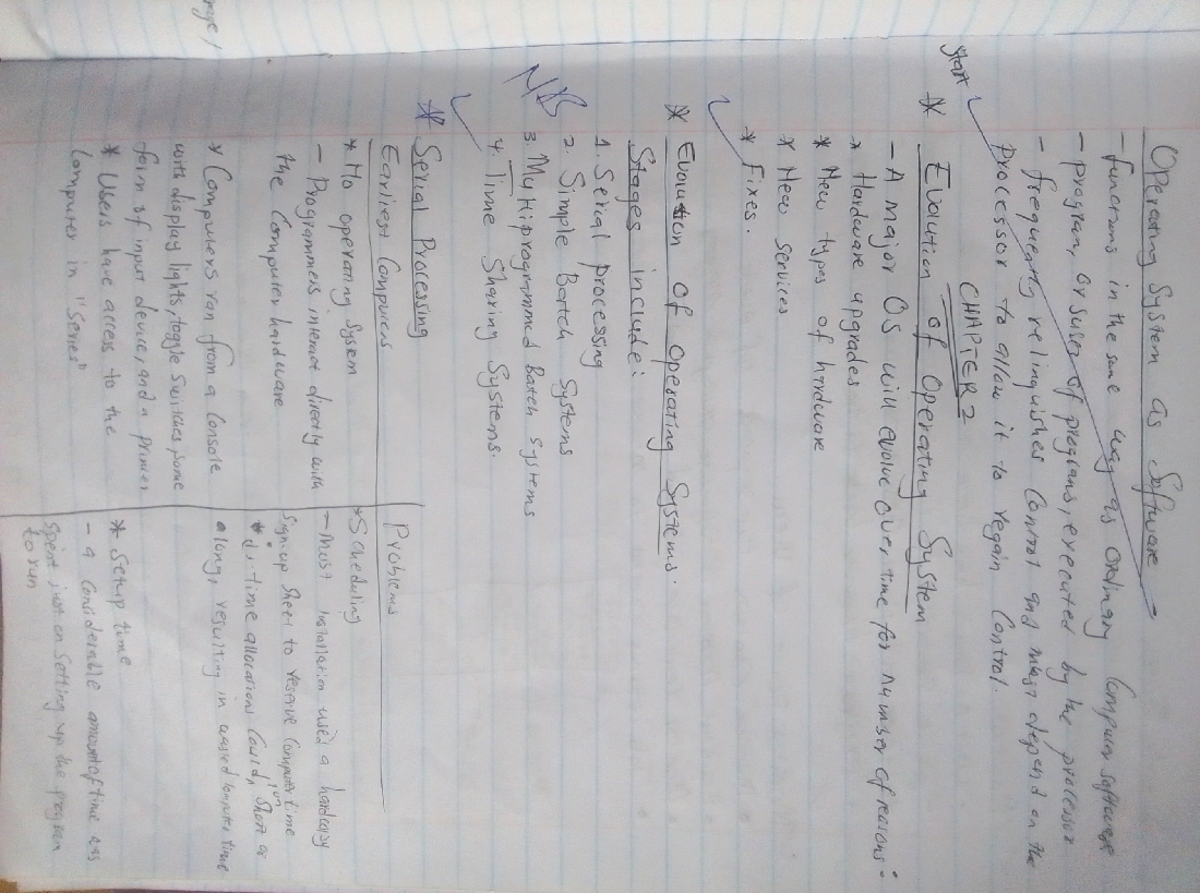 Operating System as Software
- functions in the same way as ordinary Computer software
- program, or suser of programs, executed by the processor
- frequently relinquishes Control and must depend on the
Processor to allow it to regain Control.
CHAPTER 2
Start
* Evolution of Operating System
- A major OS will evolve over time for number of reasons:
* Hardware upgrades
* New types of hardware
* New services
* Fixes.
* Evolution of Operating Systems.
Stages include:
1. Serial processing
2. Simple Batch Systems
3. Multiprogrammed Batch Systems
4. Time Sharing Systems.
* Serial Processing
Earliest Computers
* No operating System
- Programmers interact directly with
the Computer hardware
* Computers ran from a Console
with display lights, toggle switches, some
form of input device, and a printer
* Users have access to the
Computer in "Series"
Problems
* Scheduling
- Most installation used a hardcopy
sign-up sheet to reserve Computer time
time allocations Could run short or
long, resulting in wasted computer time
* Setup time
- a Considerable amount of time was
spent just on Setting up the program
to run